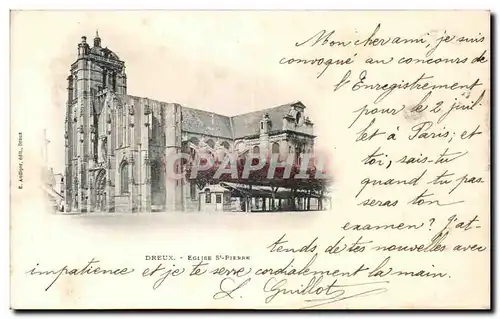 Mon cher ami, je suis
convoqué au concours de
l'Enregistrement
pour le 2 juil.
et à Paris; et
toi, sais-tu
quand tu pas-
seras ton
examen? J'at-
tends de tes nouvelles avec
impatience et je te serre cordialement la main.
L. Guillot
E. Andiger, édit., Dreux
CPAPHIL
DREUX. - EGLISE St-PIERRE